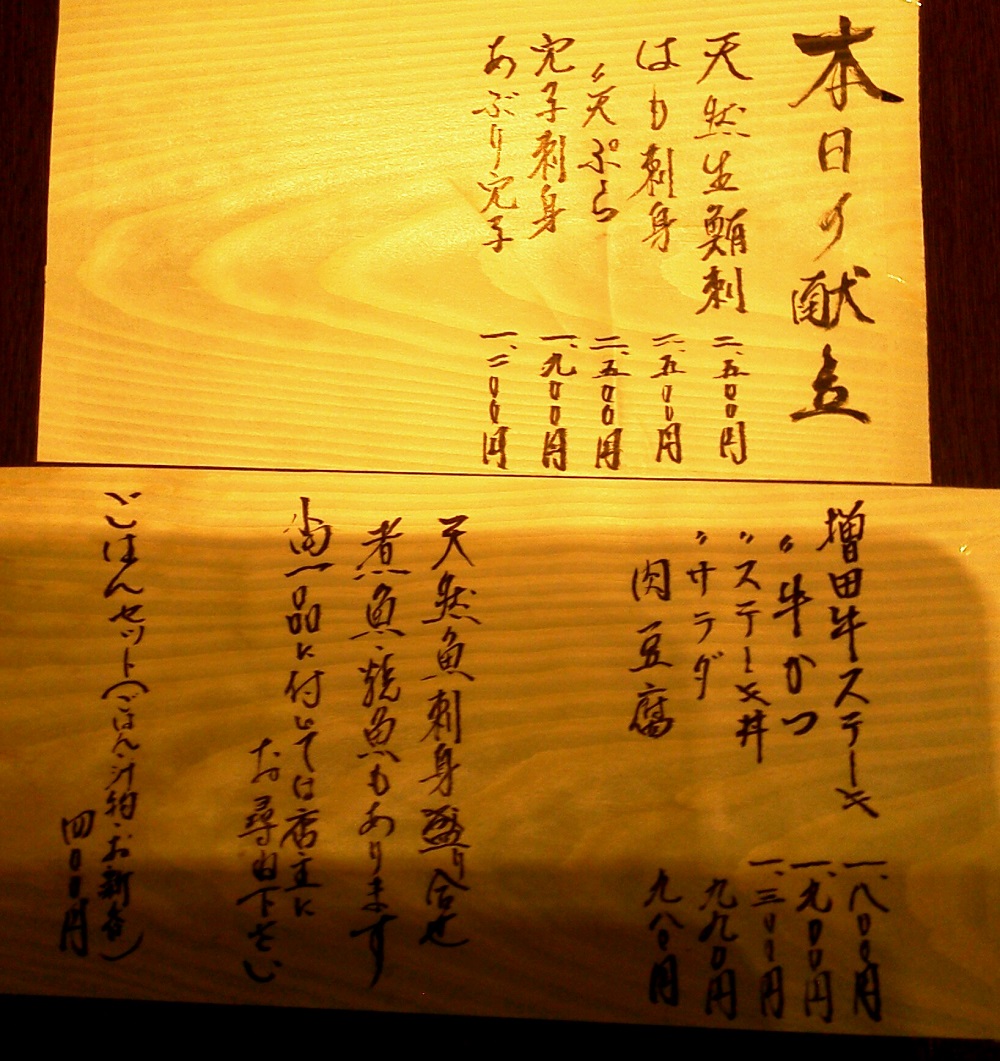 本日の献立
天然生鮪刺 二、五〇〇円
はも刺身 二、五〇〇円
〃天ぷら 二、五〇〇円
穴子刺身 一、九〇〇円
あぶり穴子 一、二〇〇円
増田牛ステーキ 一、八〇〇円
〃牛かつ 一、九〇〇円
〃ステーキ丼 一、三〇〇円
〃サラダ 九九〇円
肉豆腐 九八〇円
天然魚刺身盛り合せ
煮魚・焼魚もあります
尚一品に付しては店主に
お尋ね下さい
ごはんセット(ごはん・汁物・お新香)
四〇〇円